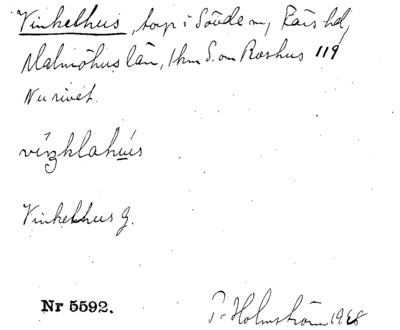 Vinkelhus, torp i Sövde sn, Färs hd,
Malmöhus län, 1 km S. om Roshus 119
Nu rivet.
viŋklahús
Vinkelhus g.
Nr 5592. P. Holmström 1928